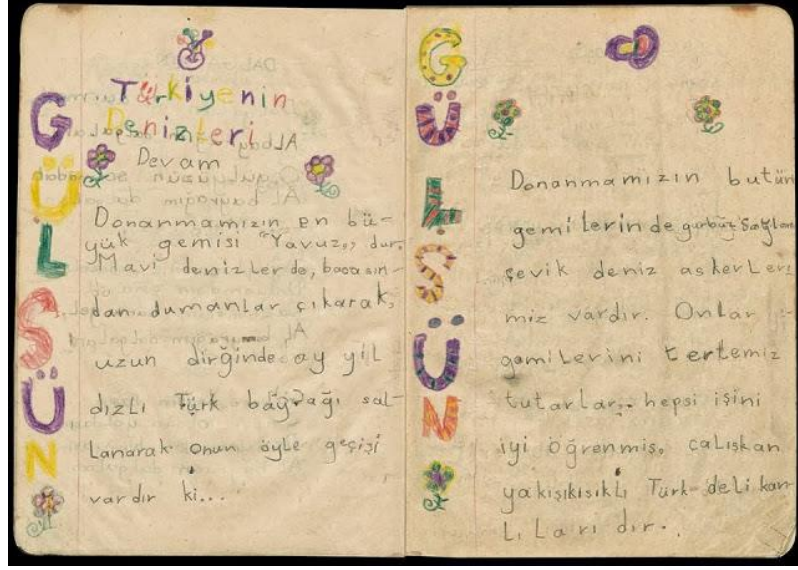 GÜLSÜN
Türkiyenin
Denizleri
Devam
Donanmamızın en bü-
yük gemisi "Yavuz,, dur.
Mavi denizlerde, bacasın-
dan dumanlar çıkarak,
uzun dirğinde ay yıl
dızlı Türk bayrağı sal-
lanarak onun öyle geçişi
vardır ki...
GÜLSÜN
Donanmamızın bütün
gemilerinde gürbüz sağlam
çevik deniz askerleri
miz vardır. Onlar
gemilerini tertemiz
tutarlar. hepsi işini
iyi öğrenmiş, çalışkan
yakışıkısıklı Türk delikan-
lıları dır.